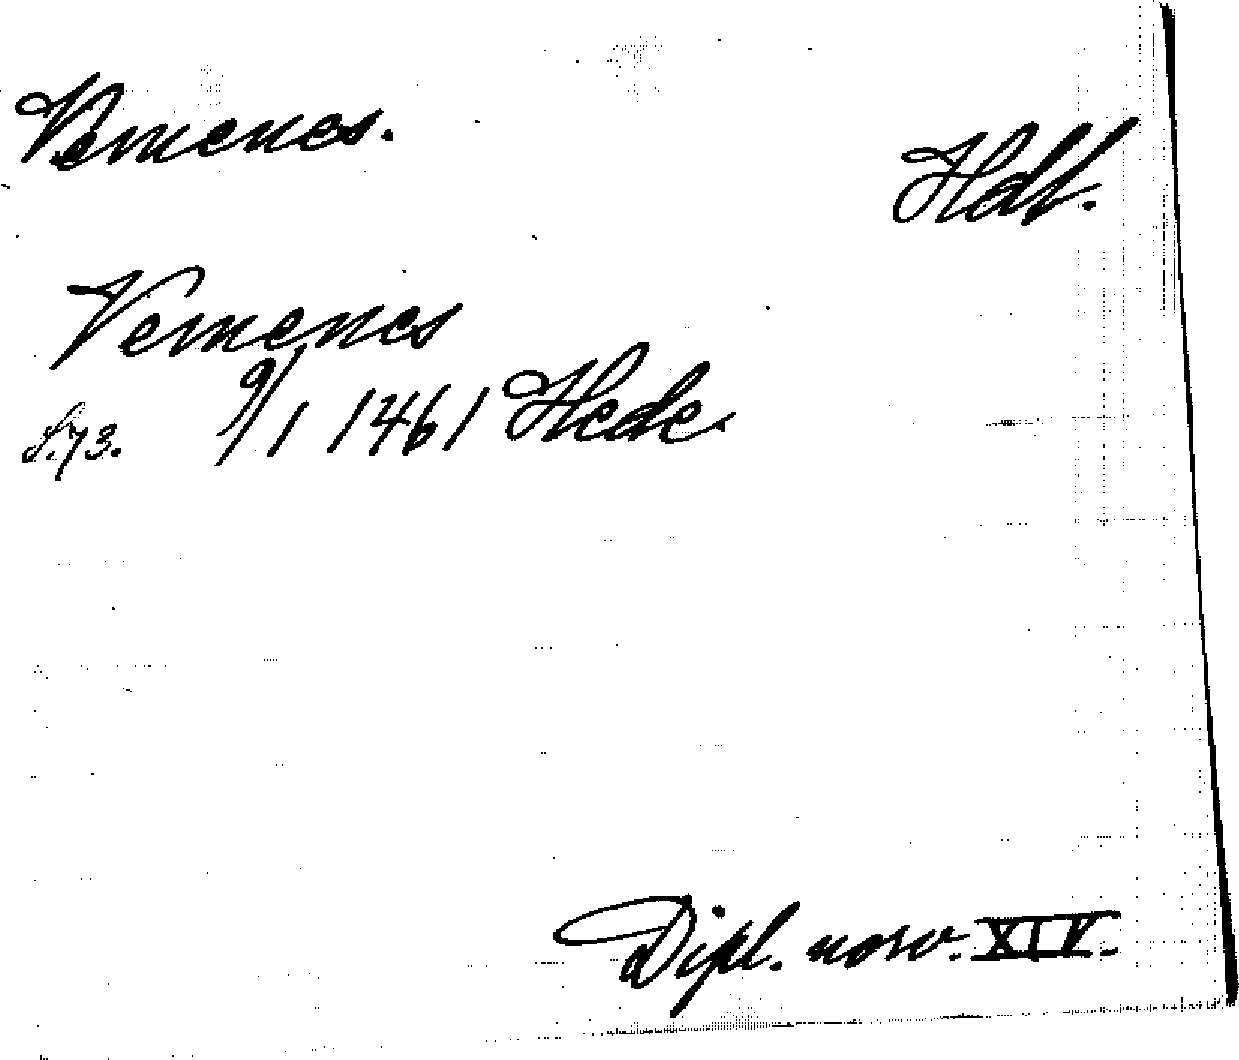 Vemenes.
Hdl.
Vemenes
S. 73. 9/1 1461 Hede.
Dipl. norv. XIV.